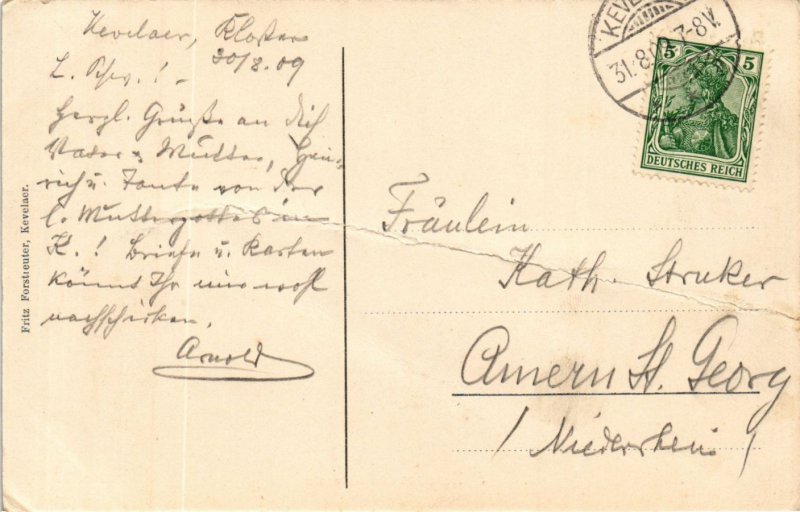 Kevelaer, Kloster
30/8.09
L. Schw.! –
Herzl. Grüße an dich
Vater u. Mutter, Hein-
rich u. Tante von der
l. Muttergottes in
K.! Briefe u. Karten
könnt Ihr mir wohl
nachschicken.
Arnold
Fritz Forstreuter, Kevelaer.
KEVE
31.8.09 7-8V.
5 5
DEUTSCHES REICH
Fräulein
Kath. Struker
Amern St. Georg
/ Niederrhein /